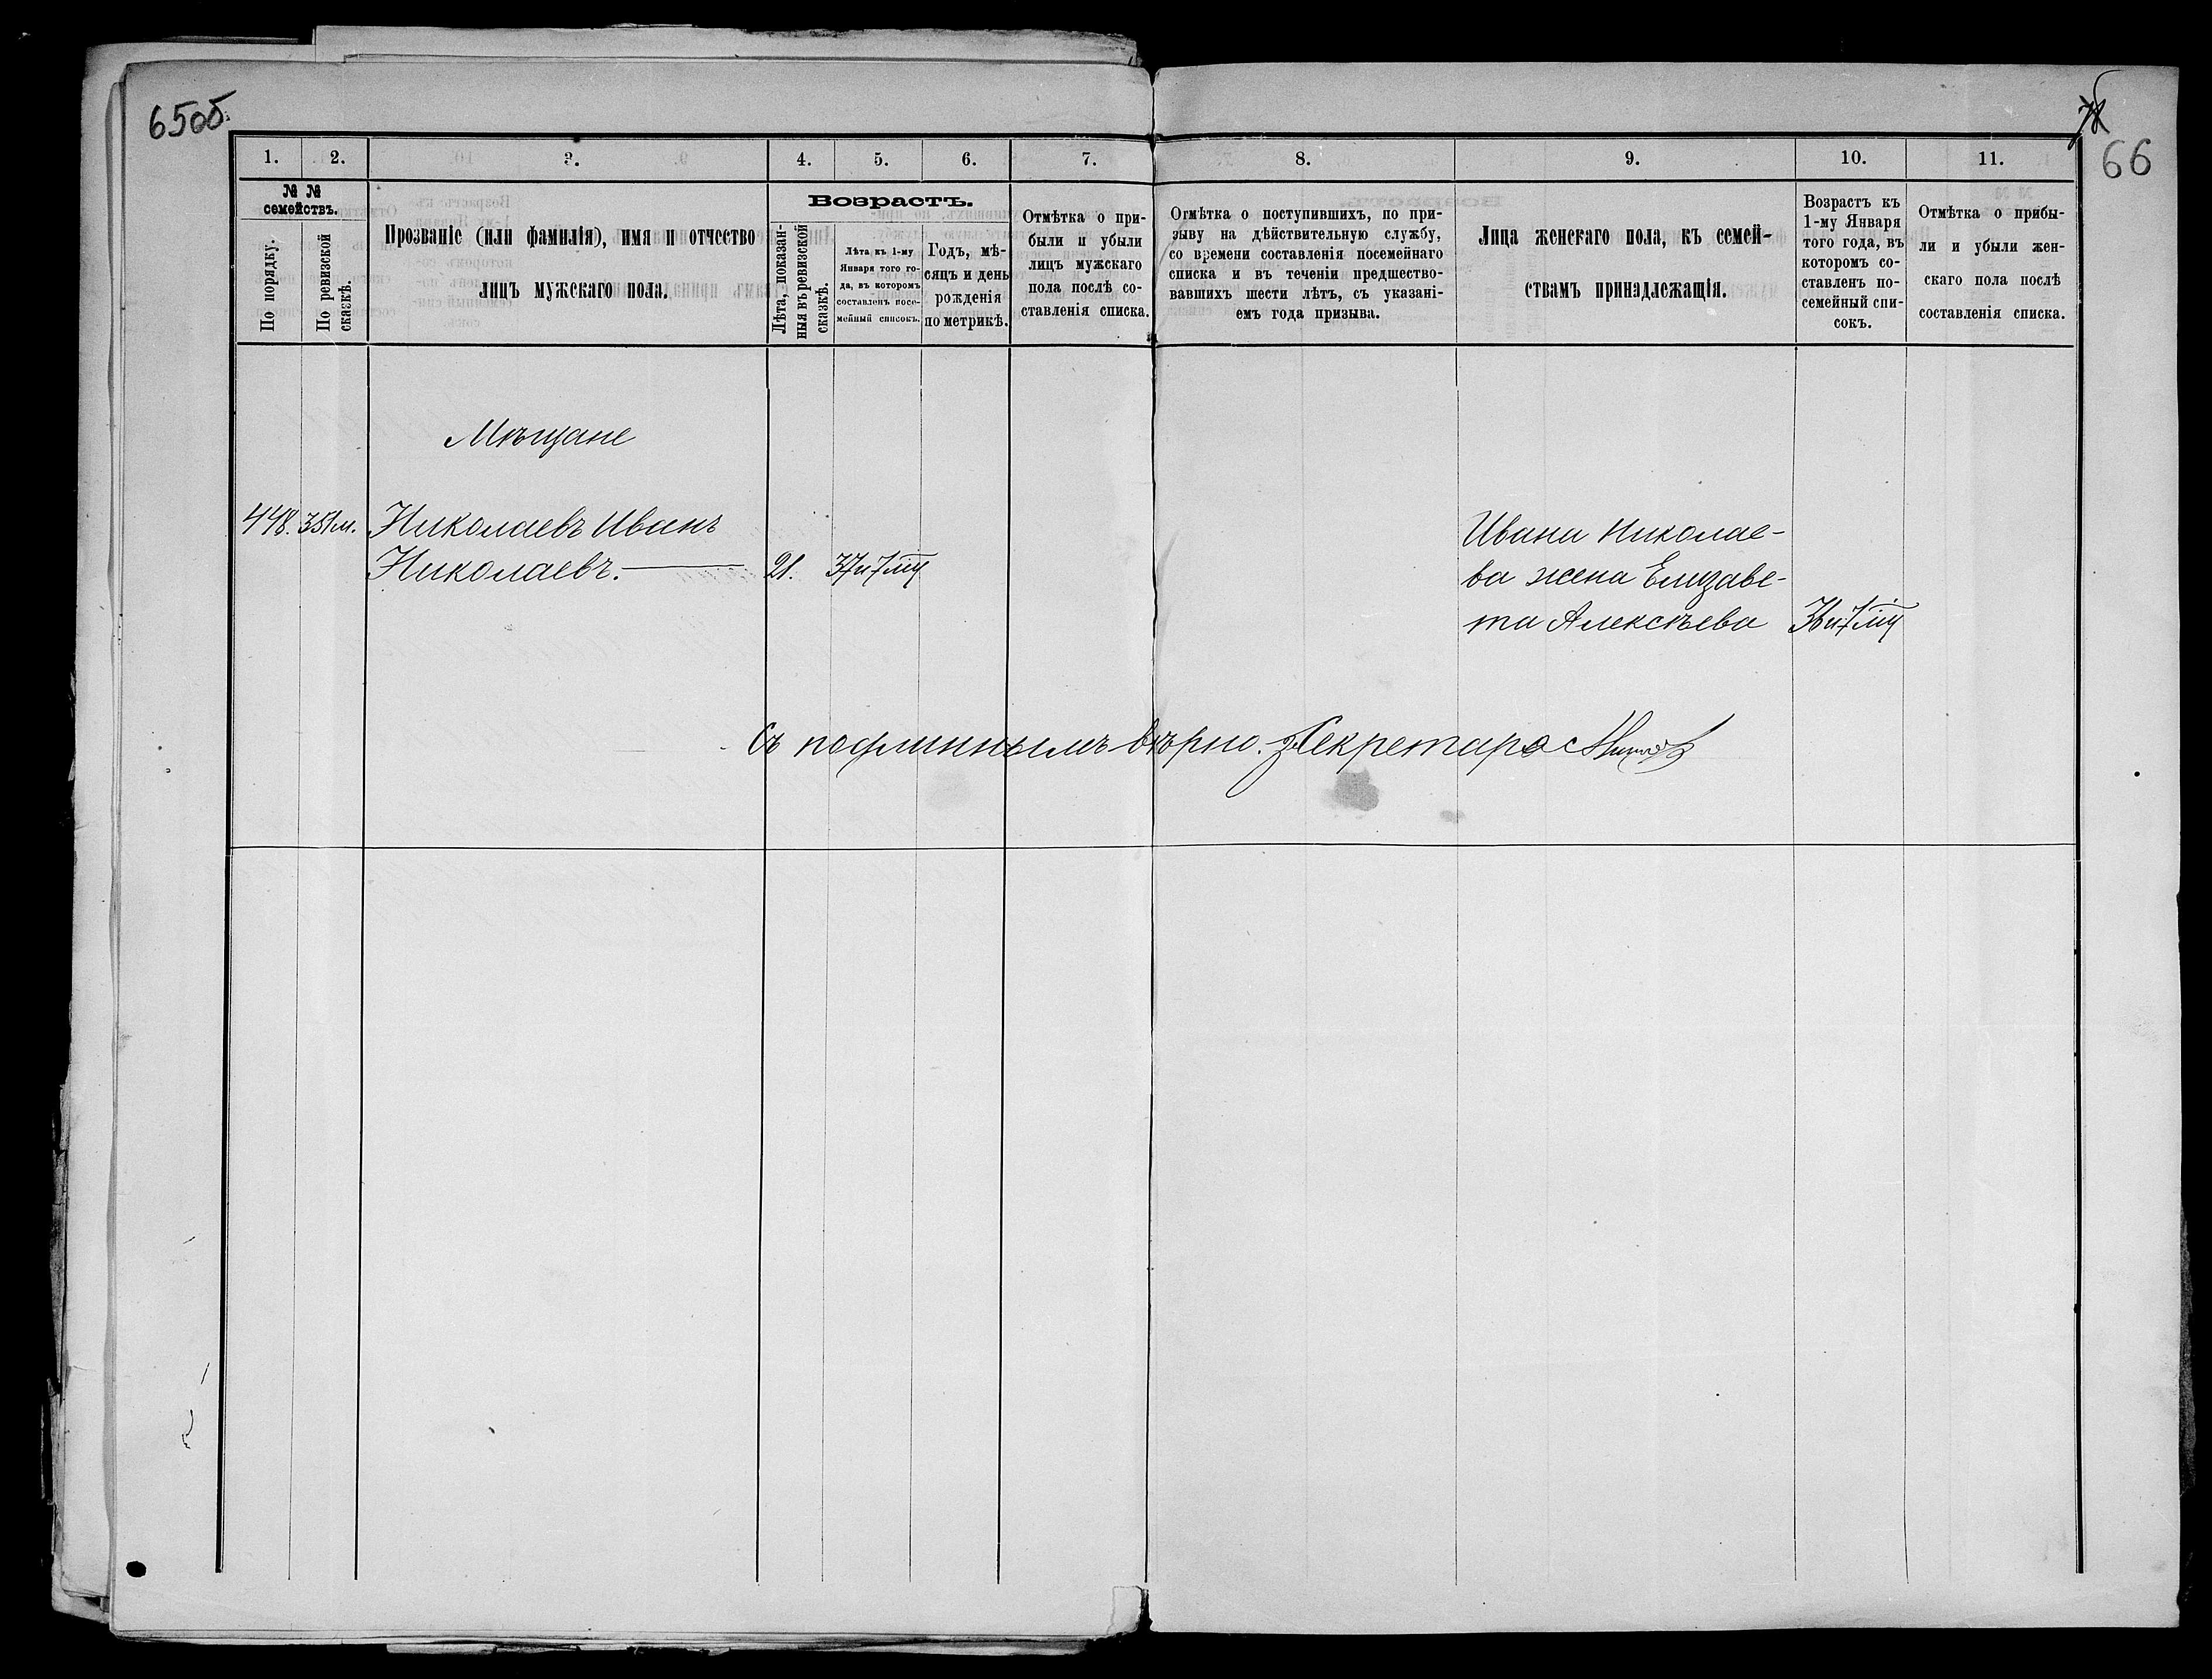 65об.
66
1.
2.
3.
4.
5.
6.
7.
8.
9.
10.
11.
№ №
семействъ.
По порядку.
По ревизской
сказкѣ.
Прозваніе (или фамилія), имя и отчество
лицъ мужскаго пола.
Возрастъ.
Лѣта, показан-
ныя въ ревизской
сказкѣ.
Лѣта къ 1-му
Января того го-
да, въ которомъ
составленъ посе-
мейный списокъ.
Годъ, мѣ-
сяцъ и день
рожденія
по метрикѣ.
Отмѣтка о при-
были и убыли
лицъ мужскаго
пола послѣ со-
ставленія списка.
Отмѣтка о поступившихъ, по при-
зыву на дѣйствительную службу,
со времени составленія посемейнаго
списка и въ теченіи предшество-
вавшихъ шести лѣтъ, съ указані-
емъ года призыва.
Лица женскаго пола, къ семей-
ствамъ принадлежащія.
Возрастъ къ
1-му Января
того года, въ
которомъ со-
ставленъ по-
семейный спи-
сокъ.
Отмѣтка о прибы-
ли и убыли жен-
скаго пола послѣ
составленія списка.
Мѣщане
448. 351м. Николаевъ Иванъ
Николаевъ. 21. 37 и 7 мц
Ивана Николае-
ва жена Елизаве-
та Алексѣева 36 и 7 мц
Съ подлиннымъ вѣрно. Секретарь